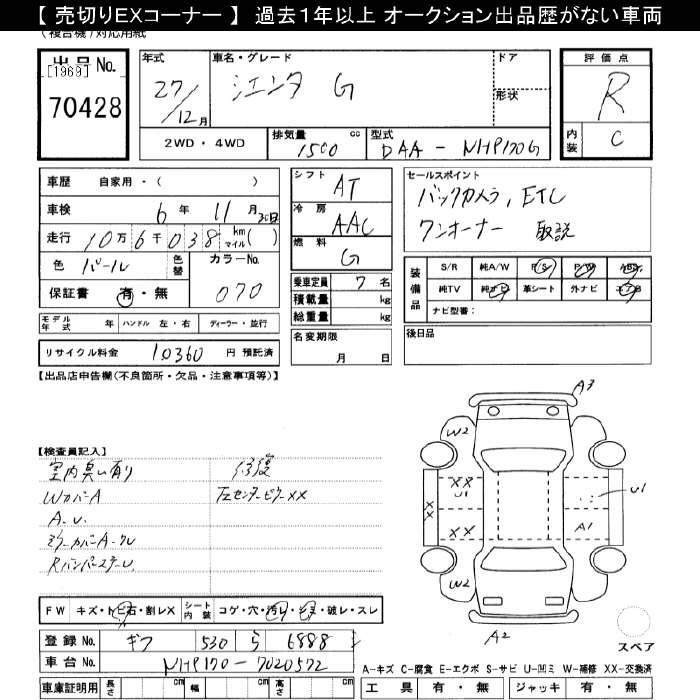 【 売切りEXコーナー 】 過去1年以上 オークション出品歴がない車両
(複合機)対応用紙
出品No. [1969]
70428
年式 27/12月
車名・グレード シエンタ G
ドア
形状
評価点 R
内装 C
2WD・4WD
排気量 1500 cc
型式 DAA-NHP170G
車歴 自家用・( )
車検 6年 11月
走行 10万6千038 km マイル ( )
色 パール
色替
カラーNo. 070
保証書 有・無
モデル年式 年 ハンドル 左・右 ディーラー・並行
リサイクル料金 10360 円 預託済
シフト AT
冷房 AAC
燃料 G
乗車定員 7 名
積載量 kg
総重量 kg
名変期限 月 日
セールスポイント
バックカメラ, ETC
ワンオーナー 取説
装備品
S/R 純A/W P/S P/W ABS
純TV 純ナビ 革シート 外ナビ エアB
ナビ型番:
後日品
【出品店申告欄(不良箇所・欠品・注意事項等)】
【検査員記入】
室内臭い有り 修復
WカバーA 左センターピラーXX
A.U.
ミラーカバーA・クレ
Rバンパーステーレ
A3
W2
XX
U1
XX
XX
U1
A1
W2
A2
スペア
FW キズ・トビ石・割レX シート内装 コゲ・穴・汚レ・シミ・破レ・スレ
登録No. ギフ 530 ら 6888
車台No. NHP170-7020572
車庫証明用 長さ cm 幅 cm 高さ cm
A-キズ C-腐食 E-エクボ S-サビ U-凹ミ W-補修 XX-交換済
工具 有・無 ジャッキ 有・無